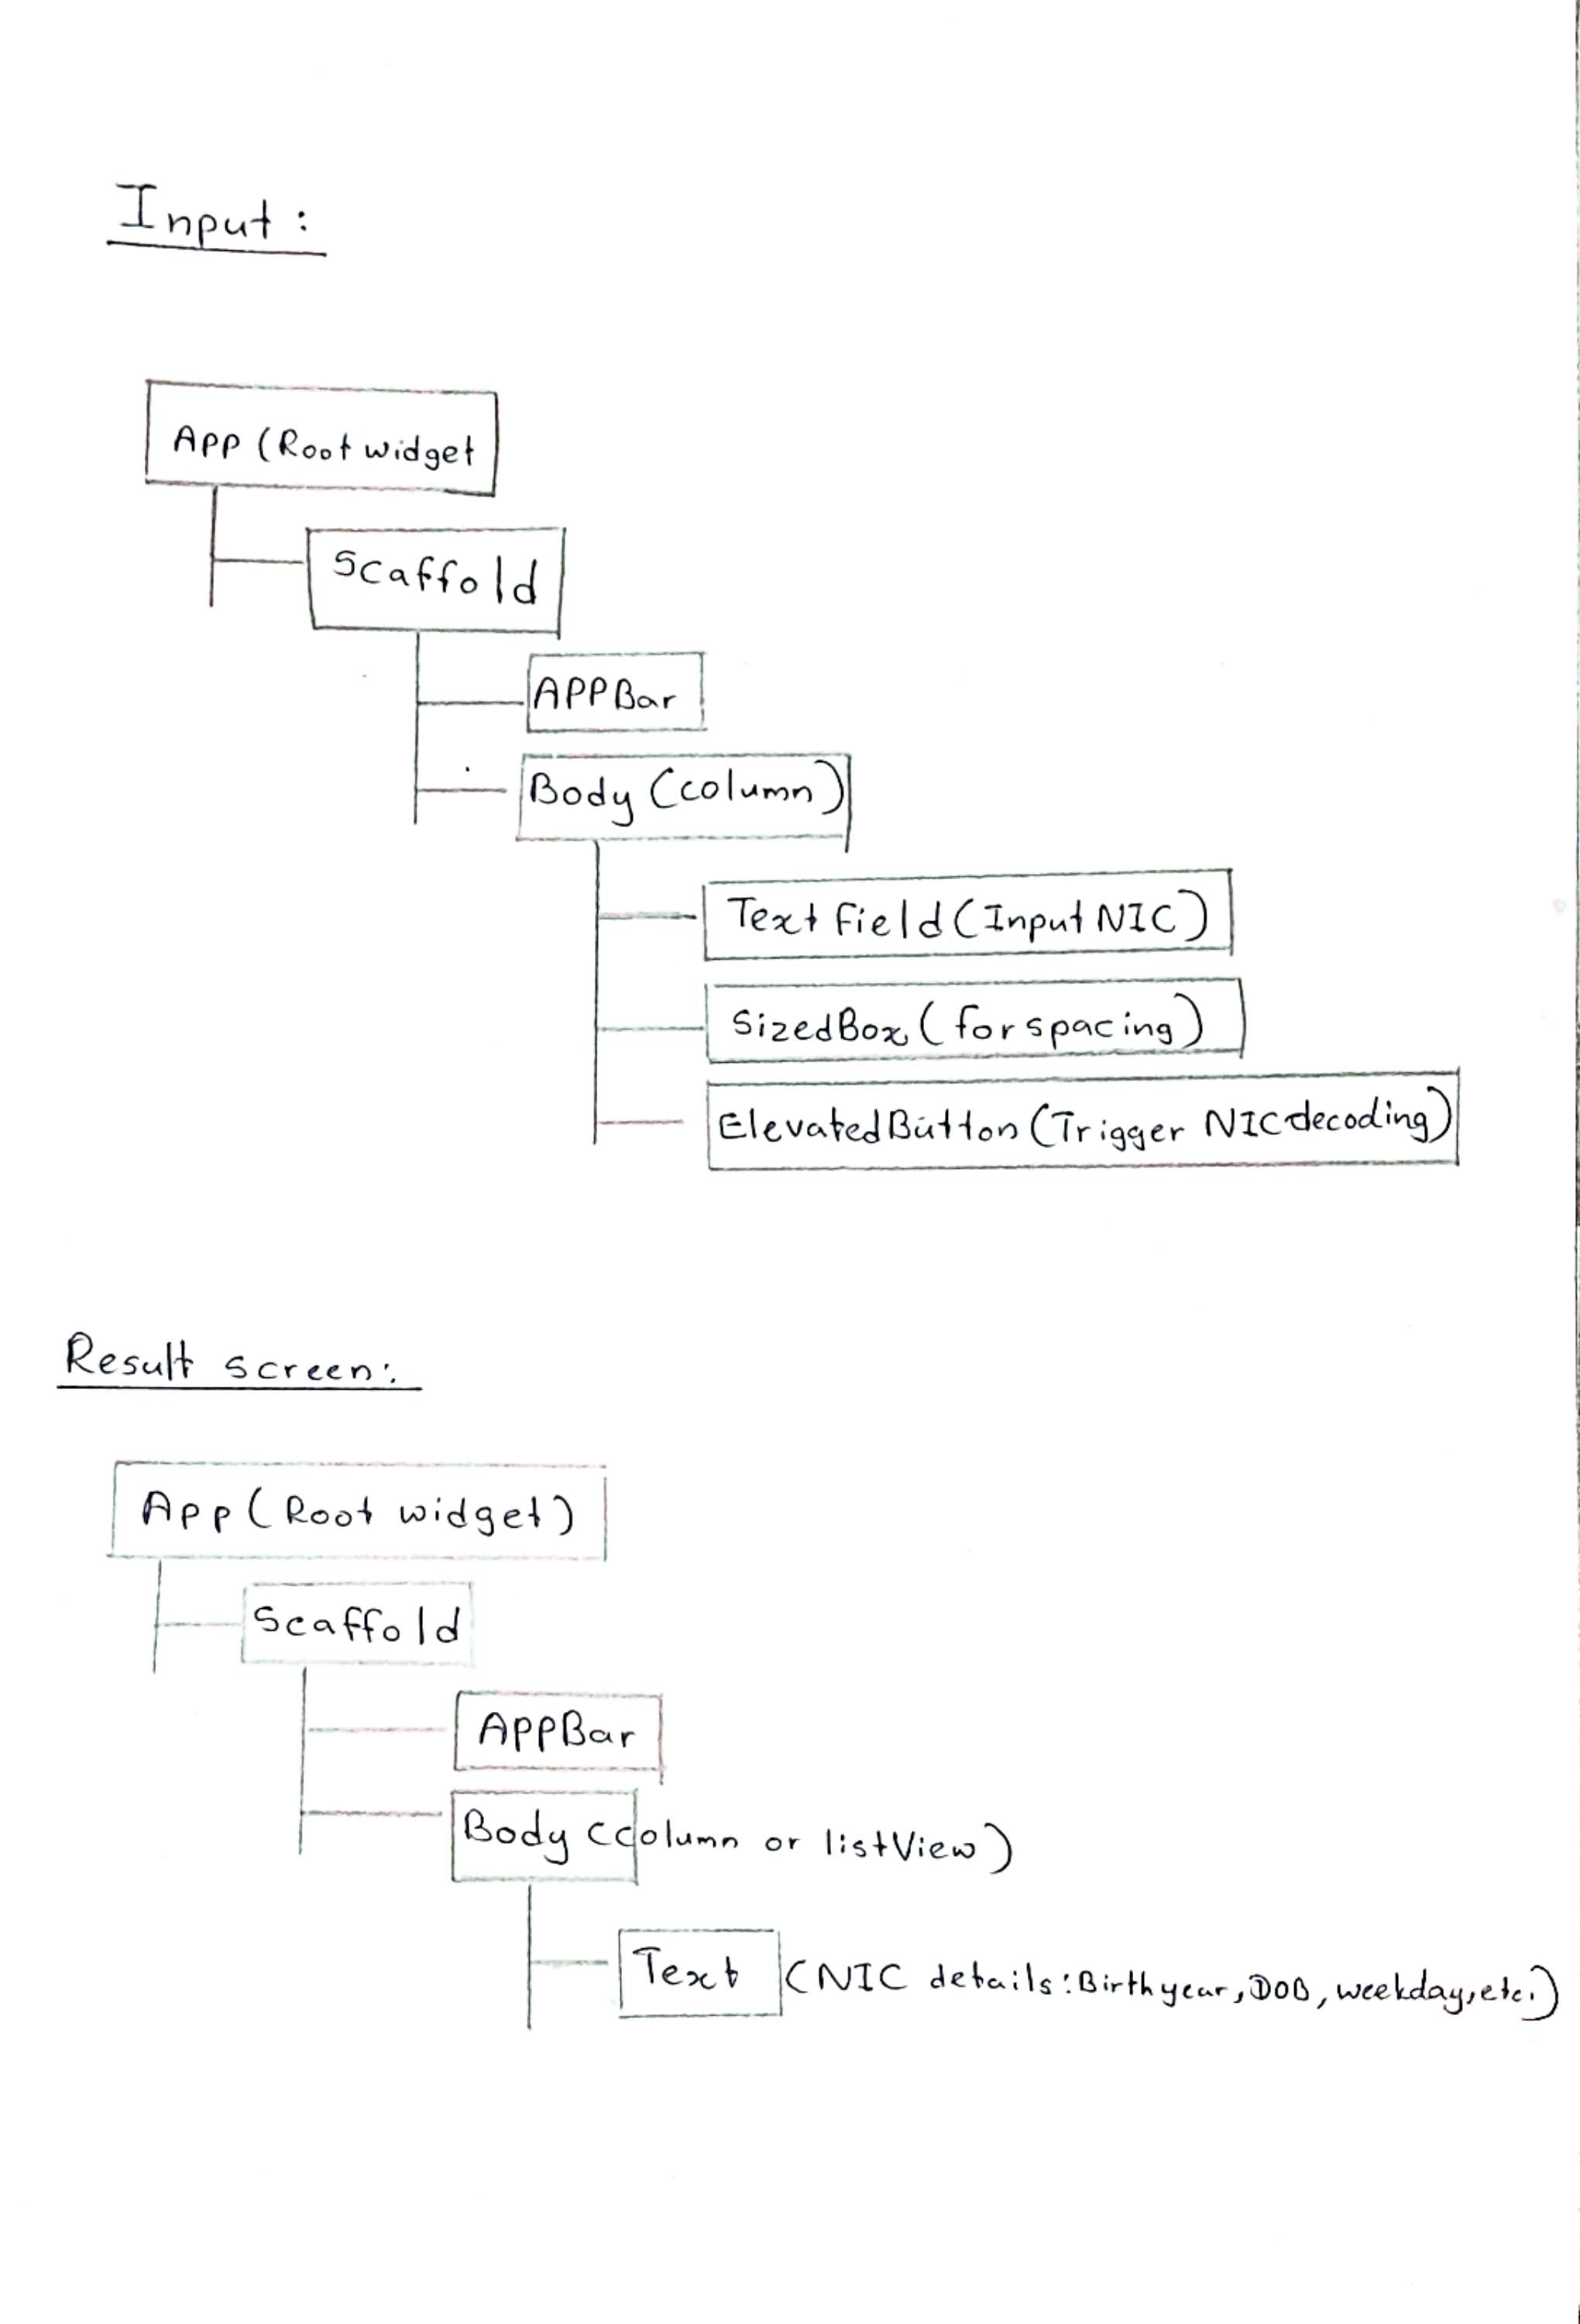 Input :
App (Root widget
Scaffold
APPBar
Body (column)
Text field (Input NIC)
SizedBox (for spacing)
ElevatedButton (Trigger NIC decoding)
Result screen:
App (Root widget)
Scaffold
APPBar
Body (column or listView)
Text (NIC details: Birthyear, DOB, weekday, etc.)